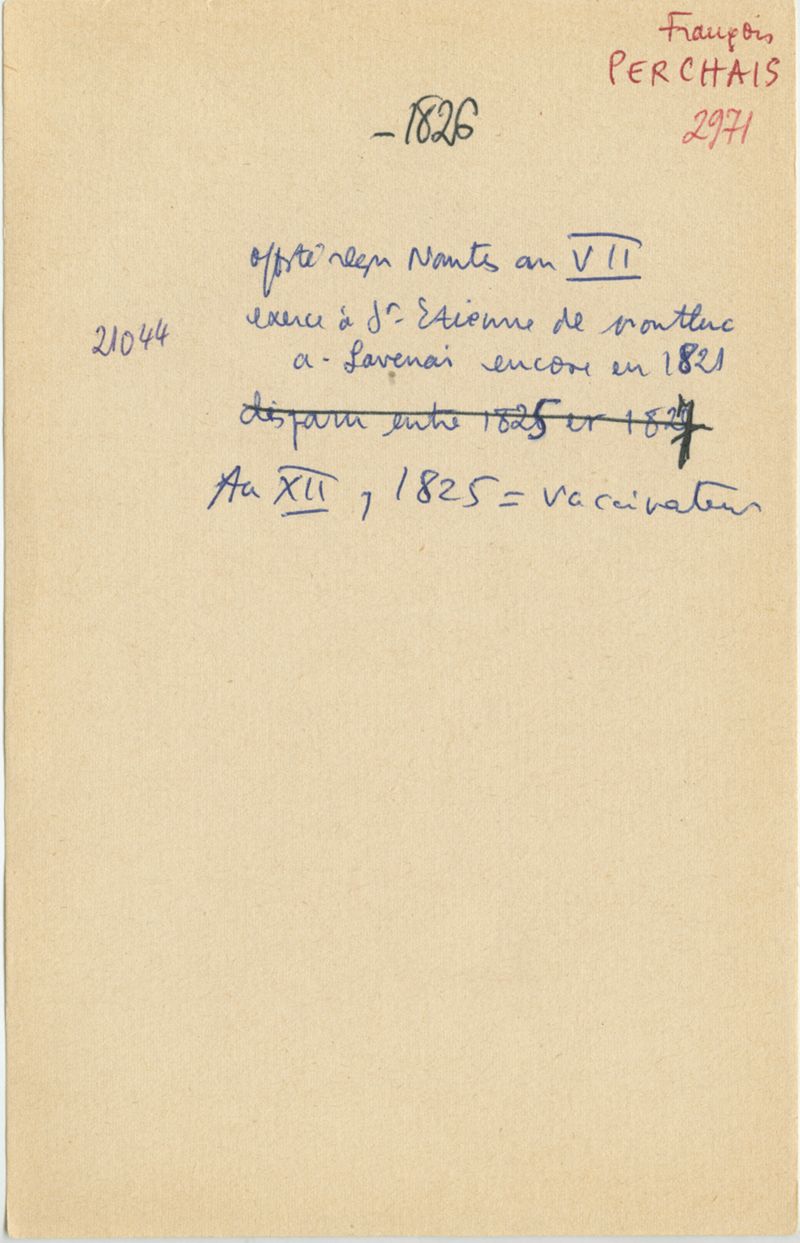 François
PERCHAIS
2971
– 1826
offté reçu Nantes an VII
exerce à St- Etienne de Montluc
21044
a - Savenai encore en 1821
disparu entre 1825 et 1827
An XII, 1825 = vaccinateur